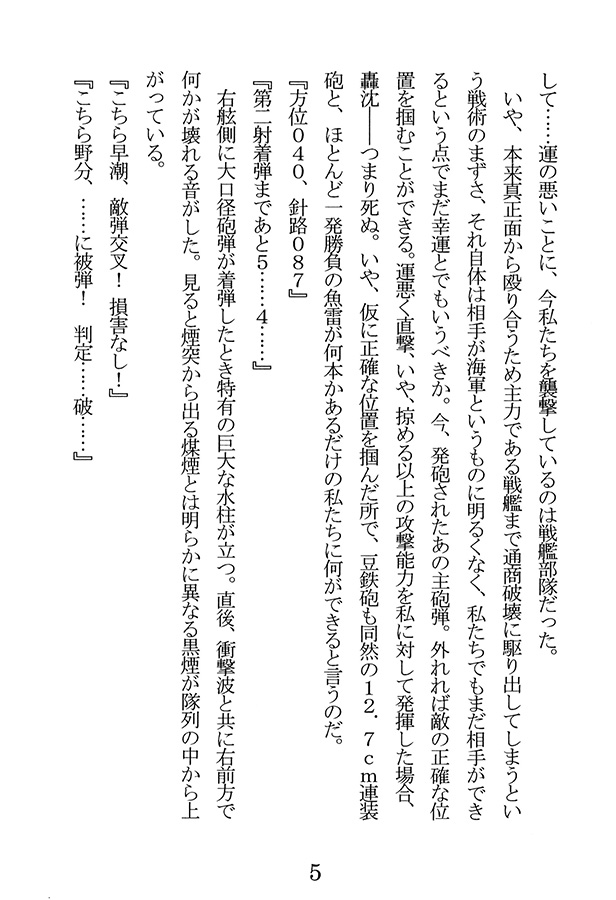 して……運の悪いことに、今私たちを襲撃しているのは戦艦部隊だった。
　いや、本来真正面から殴り合うため主力である戦艦まで通商破壊に駆り出してしまうとい
う戦術のまずさ、それ自体は相手が海軍というものに明るくなく、私たちでもまだ相手ができ
るという点でまだ幸運とでもいうべきか。今、発砲されたあの主砲弾。外れれば敵の正確な位
置を掴むことができる。運悪く直撃、いや、掠める以上の攻撃能力を私に対して発揮した場合、
轟沈――つまり死ぬ。いや、仮に正確な位置を掴んだ所で、豆鉄砲も同然の１２．７ｃｍ連装
砲と、ほとんど一発勝負の魚雷が何本かあるだけの私たちに何ができると言うのだ。
『方位０４０、針路０８７』
『第二射着弾まであと５……４……』
　右舷側に大口径砲弾が着弾したとき特有の巨大な水柱が立つ。直後、衝撃波と共に右前方で
何かが壊れる音がした。見ると煙突から出る煤煙とは明らかに異なる黒煙が隊列の中から上
がっている。
『こちら早潮、敵弾交叉！　損害なし！』
『こちら野分、……に被弾！　判定……破……』
5